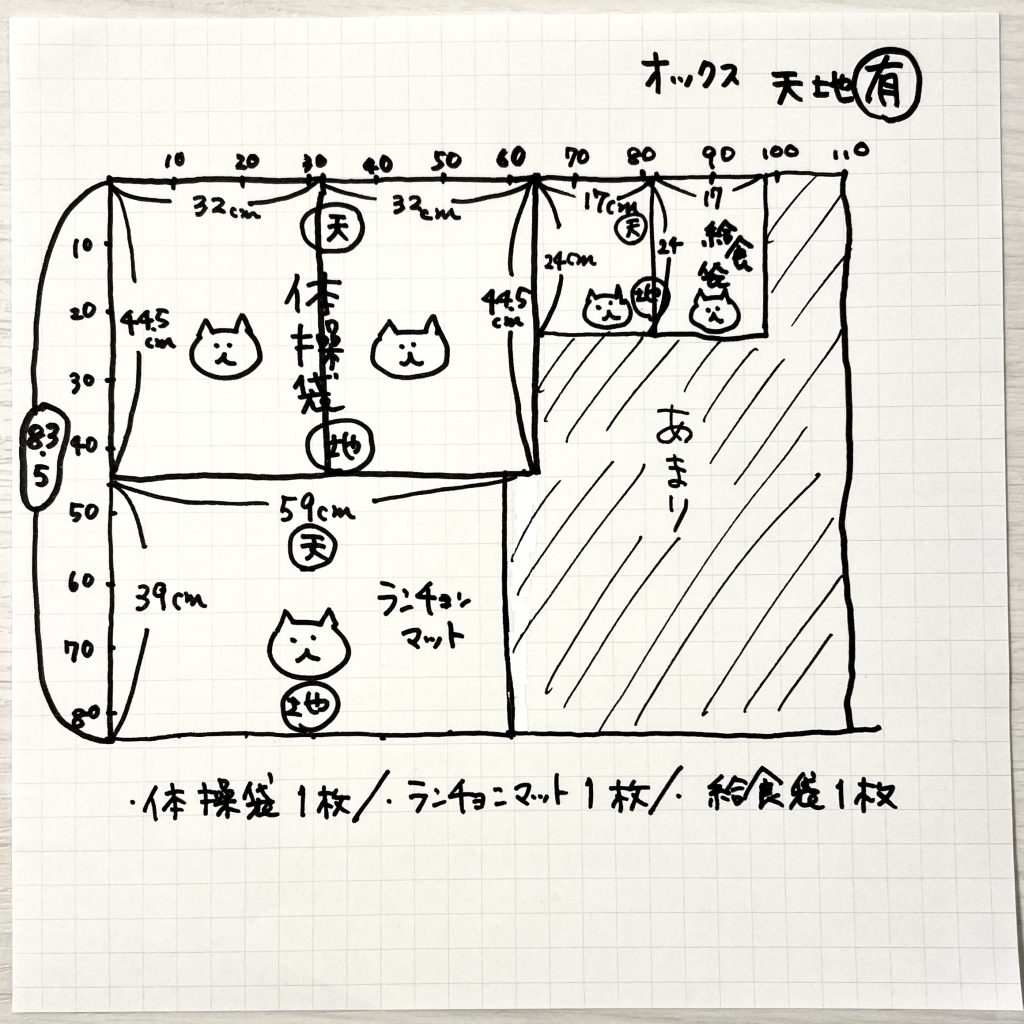 オックス 天地 有
10 20 30 40 50 60 70 80 90 100 110
32cm 32cm 17cm 17
天 天
10
24cm 24 給食袋
20
44.5cm 体操袋 44.5cm 地
30
83.5
40 地
50 59cm
天
60 39cm ランチョン
マット
70
80 地
あまり
・体操袋1枚/・ランチョンマット1枚/・給食袋1枚